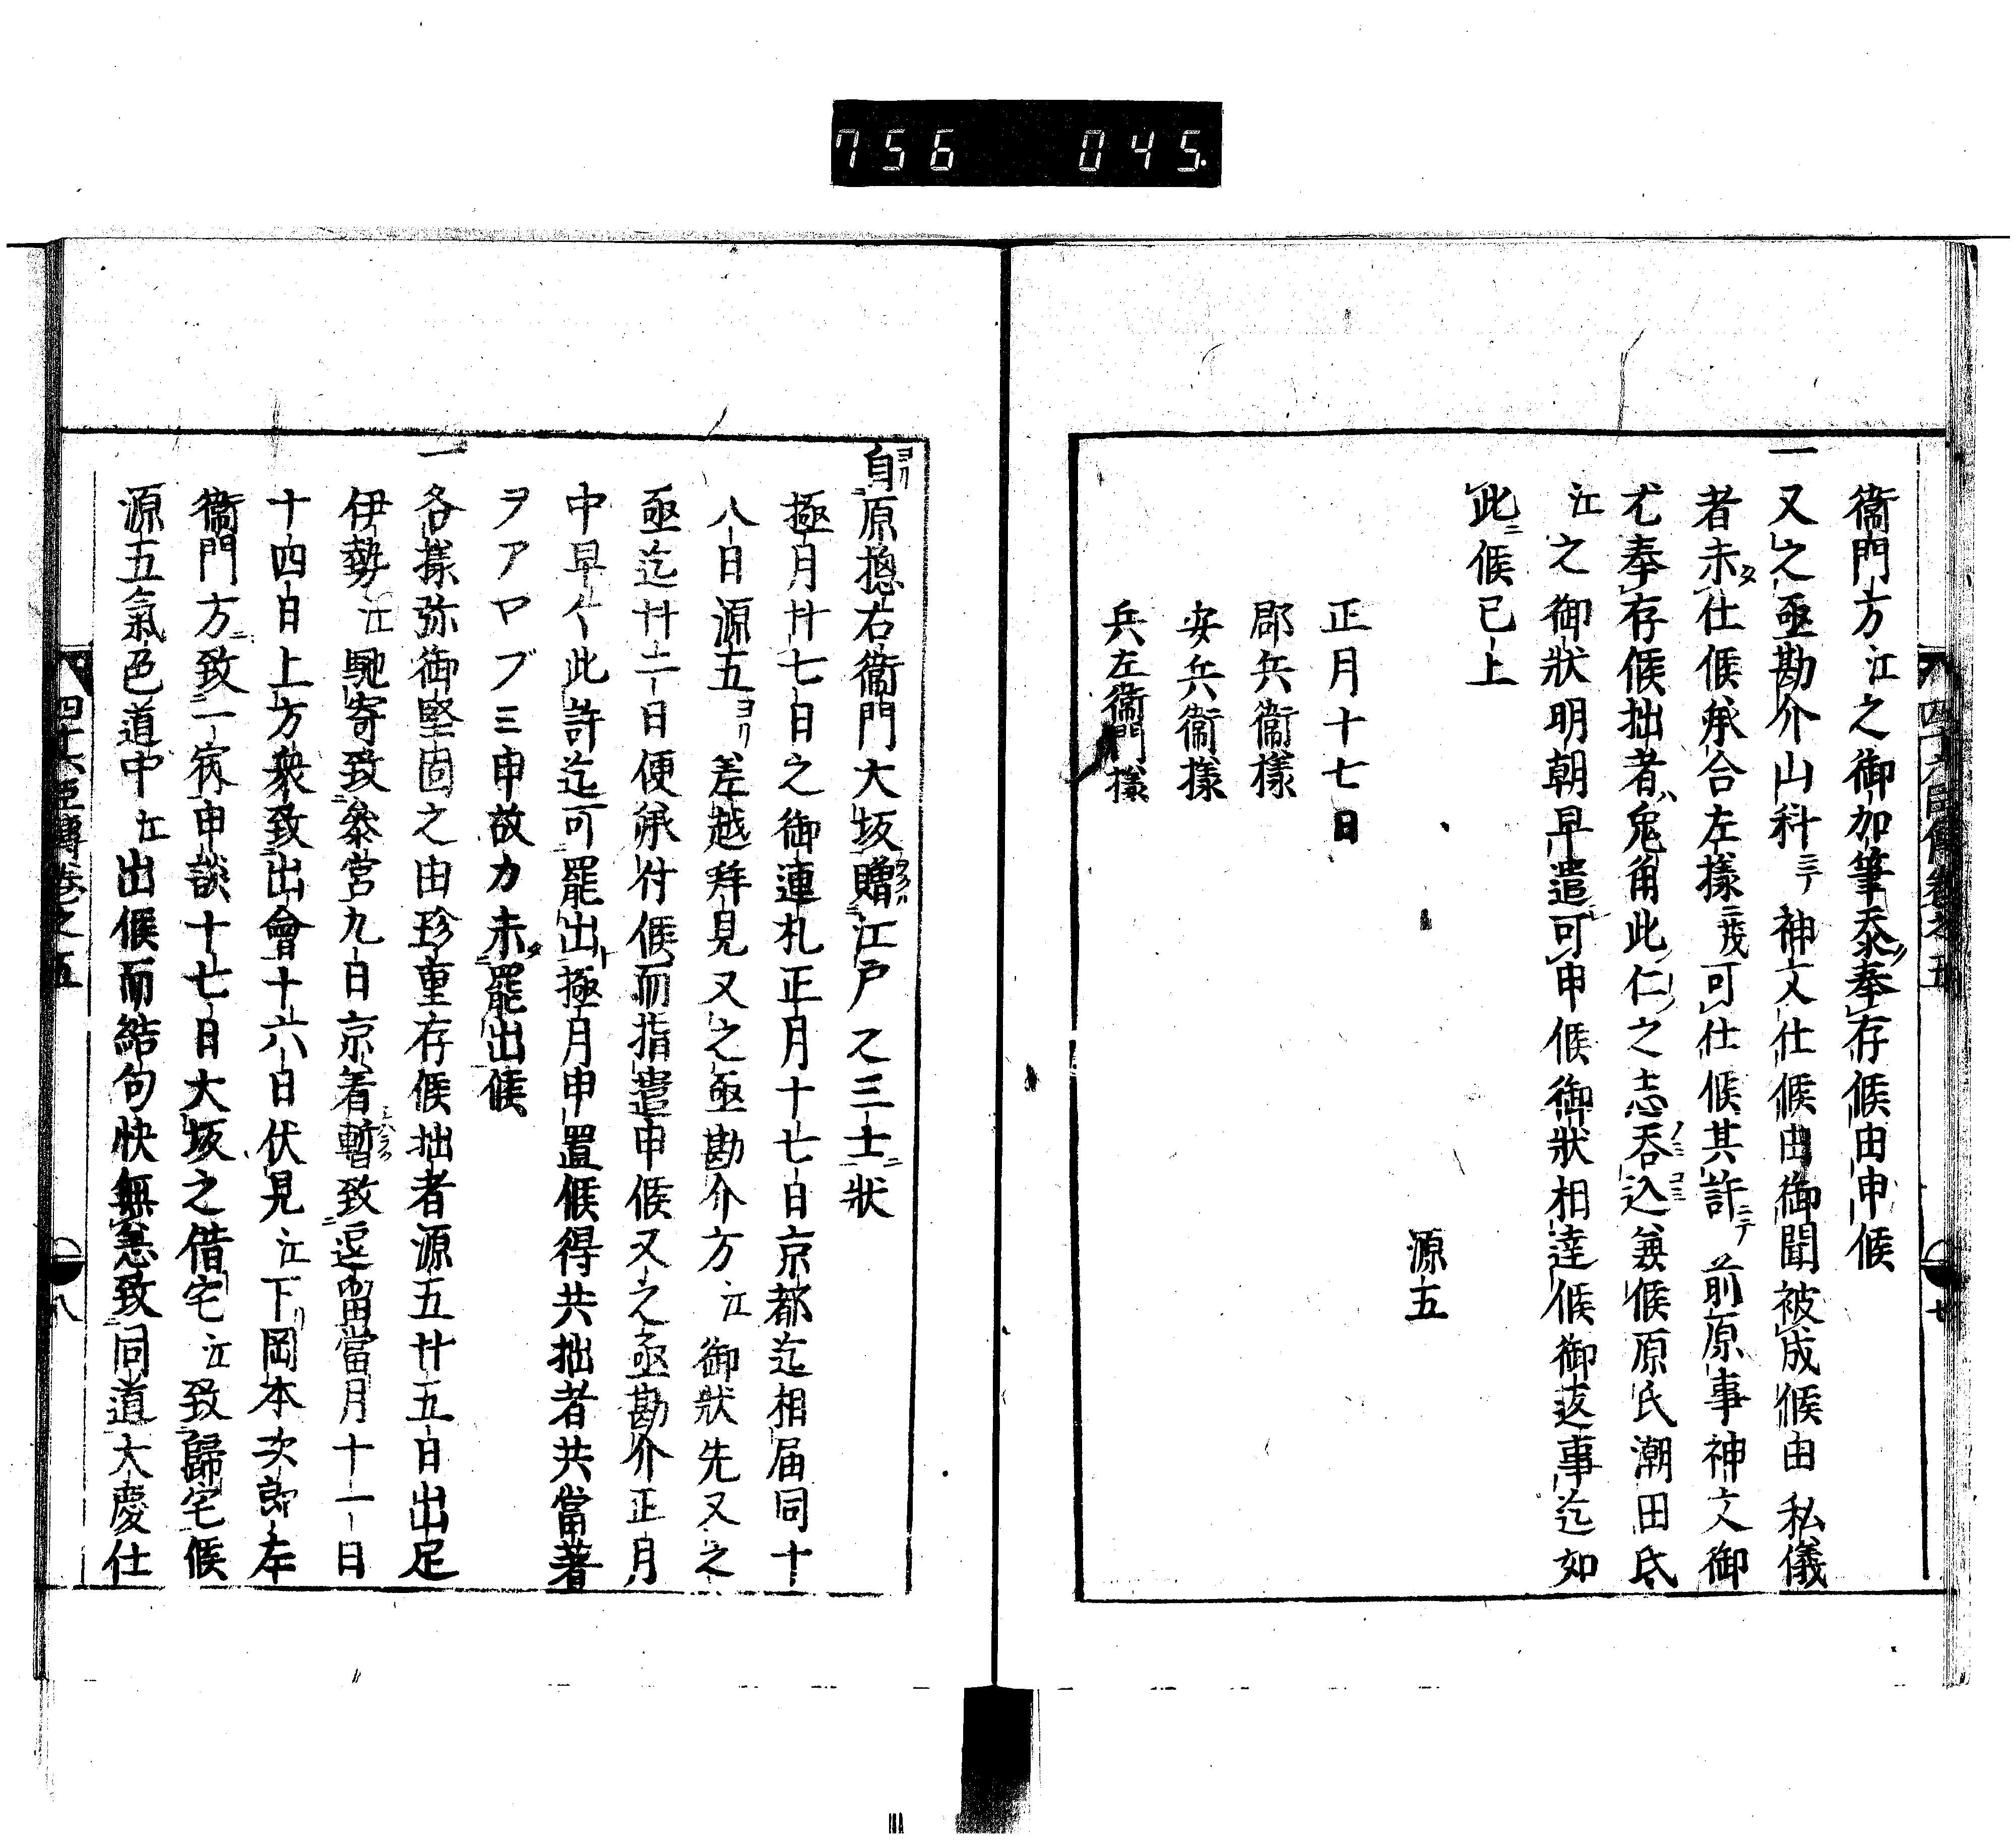 756 045.
衞門方江之御加筆忝奉存候由申候
一又之亟勘介山科ニテ神文仕候由御聞被成候由私儀
者未タ仕候承合左樣ニ茂可仕候其許ニテ前原事神文御
尤奉存候拙者ハ兎角此仁ノ之志吞込兼候原氏潮田氏
江之御狀明朝早遣可申候御狀相達候御返事迄如
此ニ候已上
源五
正月十七日
郡兵衞樣
安兵衞樣
兵左衞門樣
四十六臣傳卷之五
七
自ヨリ原摠右衞門大坂贈江戸之三士ニ狀
極月廿七日之御連札正月十七日京都迄相届同十
八日源五ヨリ差越拜見又之亟勘介方江御狀先又之
亟迄廿二日便承付候而指遣申候又之亟勘介正月
中早々此許迄可罷出ト極月申置候得共拙者共當著
ヲアヤブミ申故カ未タ罷出候
一各樣弥御堅固之由珍重存候拙者源五廿五日出足
伊勢江馳寄致參宮九日京着暫致逗留當月十一日
十四日上方衆致出會十六日伏見江下リ岡本次郎左
衞門方ニ致一宿申談十七日大坂之借宅江致歸宅候
源五氣色道中江出候而結句快無恙致同道大慶仕
四十六臣傳卷之五
八